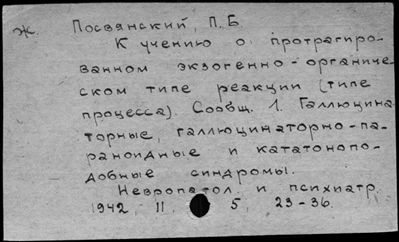 Ж. Посвянский, П.Б
К учению о протрагиро-
ванном экзогенно-органиче-
ском типе реакции (типе
процесса). Сообщ. 1. Галлюцина-
торные, галлюцинаторно-па-
раноидные и кататонопо-
добные синдромы.
Невропатол. и психиатр.
1942, 11, 5, 23-36.